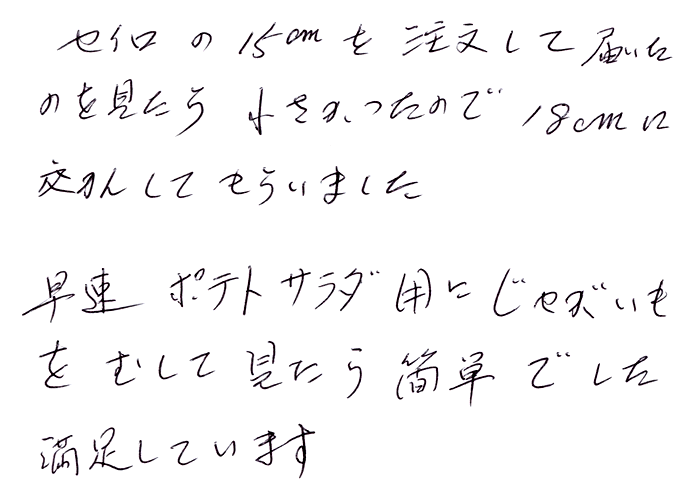 セイロの15cmを注文して届いた
のを見たら小さかったので18cmに
交かんしてもらいました
早速ポテトサラダ用にじゃがいも
をむして見たら簡単でした
満足しています